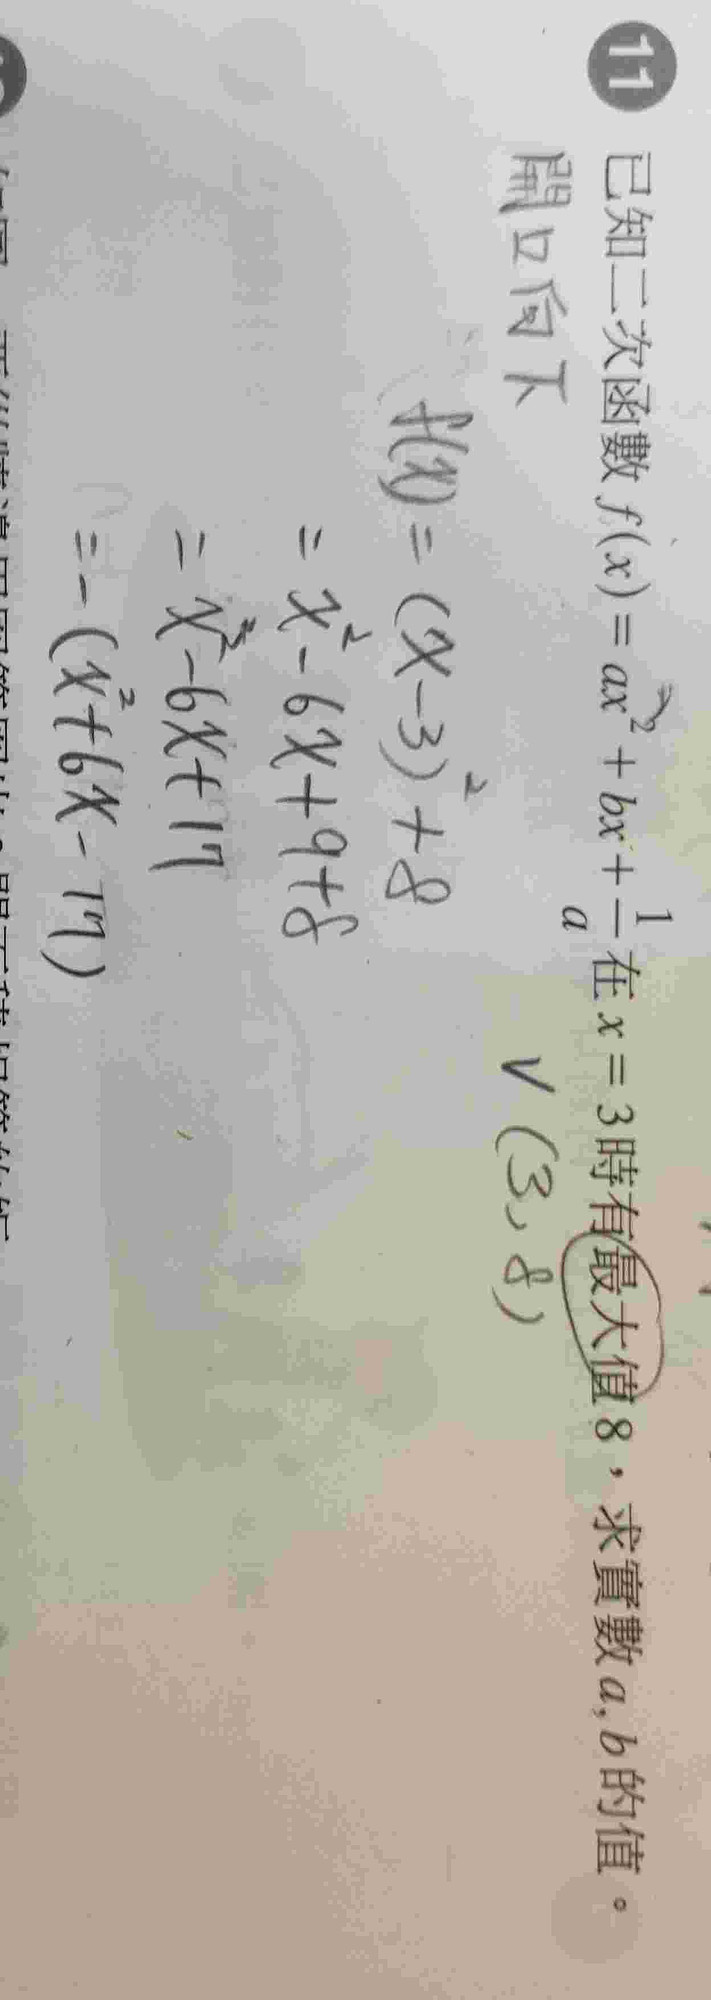 11 已知二次函數 f(x) = ax² + bx + 1/a 在 x = 3 時有最大值 8，求實數 a, b 的值。
開口向下 V (3, 8)
f(x) = (x-3)² + 8
= x² - 6x + 9 + 8
= x² - 6x + 17
= -(x² + 6x - 17)